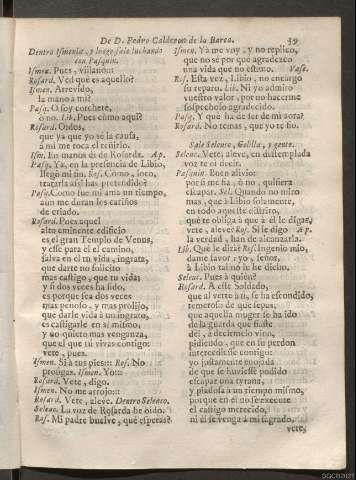 De D. Pedro Calderon de la Barca. 39
Dentro Ismenia, y luego sale luchando
con Pasquin.
Ismen. Pues, villano::
Rosard. Ved què es aquello?
Ismen. Atrevido,
la mano à mi?
Pasq. O soy corchete,
ò no. Lib. Pues como aqui?
Rosard. Oidos,
que ya que yo sè la causa,
à mi me toca el reñirlo.
Ism. En manos di de Rosarda. Ap.
Pasq. Ya, en la presencia de Libio,
llegò mi fin. Ros. Como, loco,
tratarla assi has pretendido?
Pasq. Como fue mi ama un tiempo,
aun me duran los cariños
de criado.
Rosard. Pues aquel
alto eminente edificio
es el gran Templo de Venus,
y esse para èl el camino,
salva en èl tu vida, ingrata,
que darte no solicito
mas castigo, que tu vida;
y si dos veces ha sido,
es porque sea dos veces
mas penoso, y mas prolijo,
que darle vida à un ingrato,
es castigarle en sì mismo,
y no quiero mas venganza,
que el que tu vivas contigo:
vete, pues.
Ismen. Si à tus pies:: Ros. No
prosigas. Ismen. Yo::
Rosard. Vete, digo.
Ismen. No me arrojo::
Rosard. Vete, aleve. Dentro Seleuco.
Seleuc. La voz de Rosarda he oìdo.
Ros. Mi padre buelve, què esperas?
Ismen. Ya me voy, y no replico,
que no sè por què agradezco
una vida que no estimo. Vase.
Ros. Esta vez, Libio, no encargo
su reparo. Lib. Ni yo admiro
vuestro valor, por no hacerme
sospechoso agradecido.
Pasq. Y què ha de ser de mi aora?
Rosard. No temas, que yo te fio.
Sale Seleuco, Golilla, y gente.
Seleuc. Vete, aleve, en destemplada
voz te oì decir.
Pasquin. Buen alivio:
por si me ha, ò no, quisiera
escapar. Sel. Quando no miro
mas, que à Libio solamente,
en todo aqueste distrito,
què te obliga à que à èl le digas,
vete, aleve? Ros. Si le digo Ap.
la verdad, han de alcanzarla.
Lib. Què le dirà? Ros. Ingenio mio,
dame favor: yo, señor,
à Libio tal no le he dicho.
Seleuc. Pues à quièn?
Rosard. A esse Soldado,
que al verte à ti, se ha escondido,
temeroso de que sepas,
que aquella muger se ha ido
de la guarda que fuiste
dèl, à decirmelo vino,
pidiendo, que en su perdon
intercediesse contigo:
yo justamente enojada
de que se huviesse podido
escapar una tyrana,
y piadosa à un tiempo mismo,
porque en èl no se execute
el castigo merecido,
ni èl se venga à mi sagrado,
vete,